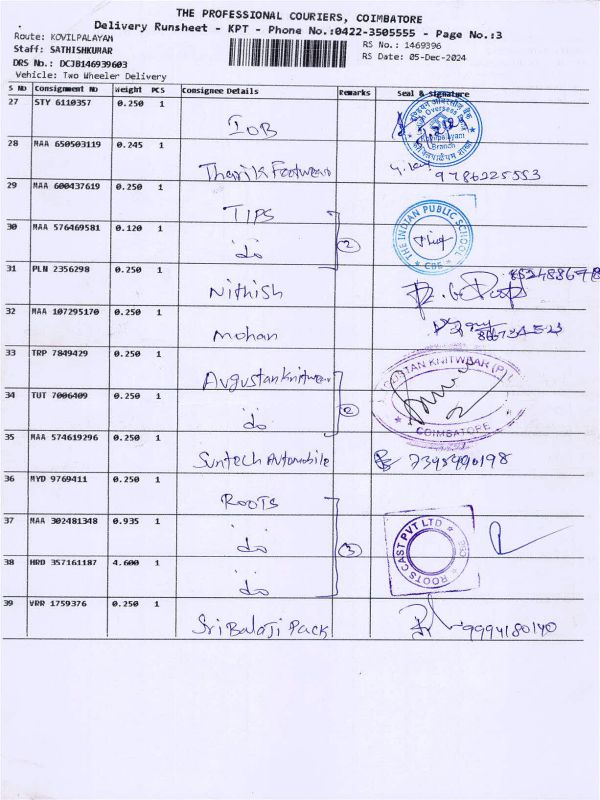 THE PROFESSIONAL COURIERS, COIMBATORE
Delivery Runsheet - KPT - Phone No.:0422-3505555 - Page No.:3
Route: KOVILPALAYAM
RS No.: 1469396
Staff: SATHISHKUMAR
RS Date: 05-Dec-2024
DRS No.: DCJB146939603
Vehicle: Two Wheeler Delivery
S No Consignment No Weight PCS Consignee Details Remarks Seal & Signature
27 STY 6110357 0.250 1 IOB
Branch
28 MAA 650503119 0.245 1 Footwear 9786225553
29 MAA 600437619 0.250 1 TIPS
THE INDIAN PUBLIC SCHOOL
CBE
30 MAA 576469581 0.120 1 do 2
31 PLN 2356298 0.250 1 Nithish
32 MAA 107295170 0.250 1 Mohan
33 TRP 7849429 0.250 1 Augustan Knitwear
KNITWEAR (P)
COIMBATORE
34 TUT 7006409 0.250 1 do 2
35 MAA 574619296 0.250 1 Suntech Automobile 7395490198
36 MYD 9769411 0.250 1 ROOTS
37 MAA 302481348 0.935 1 do 3
ROOTS CAST PVT LTD
38 HRD 357161187 4.600 1 do
39 VRR 1759376 0.250 1 Sri Balaji Pack 9994180140